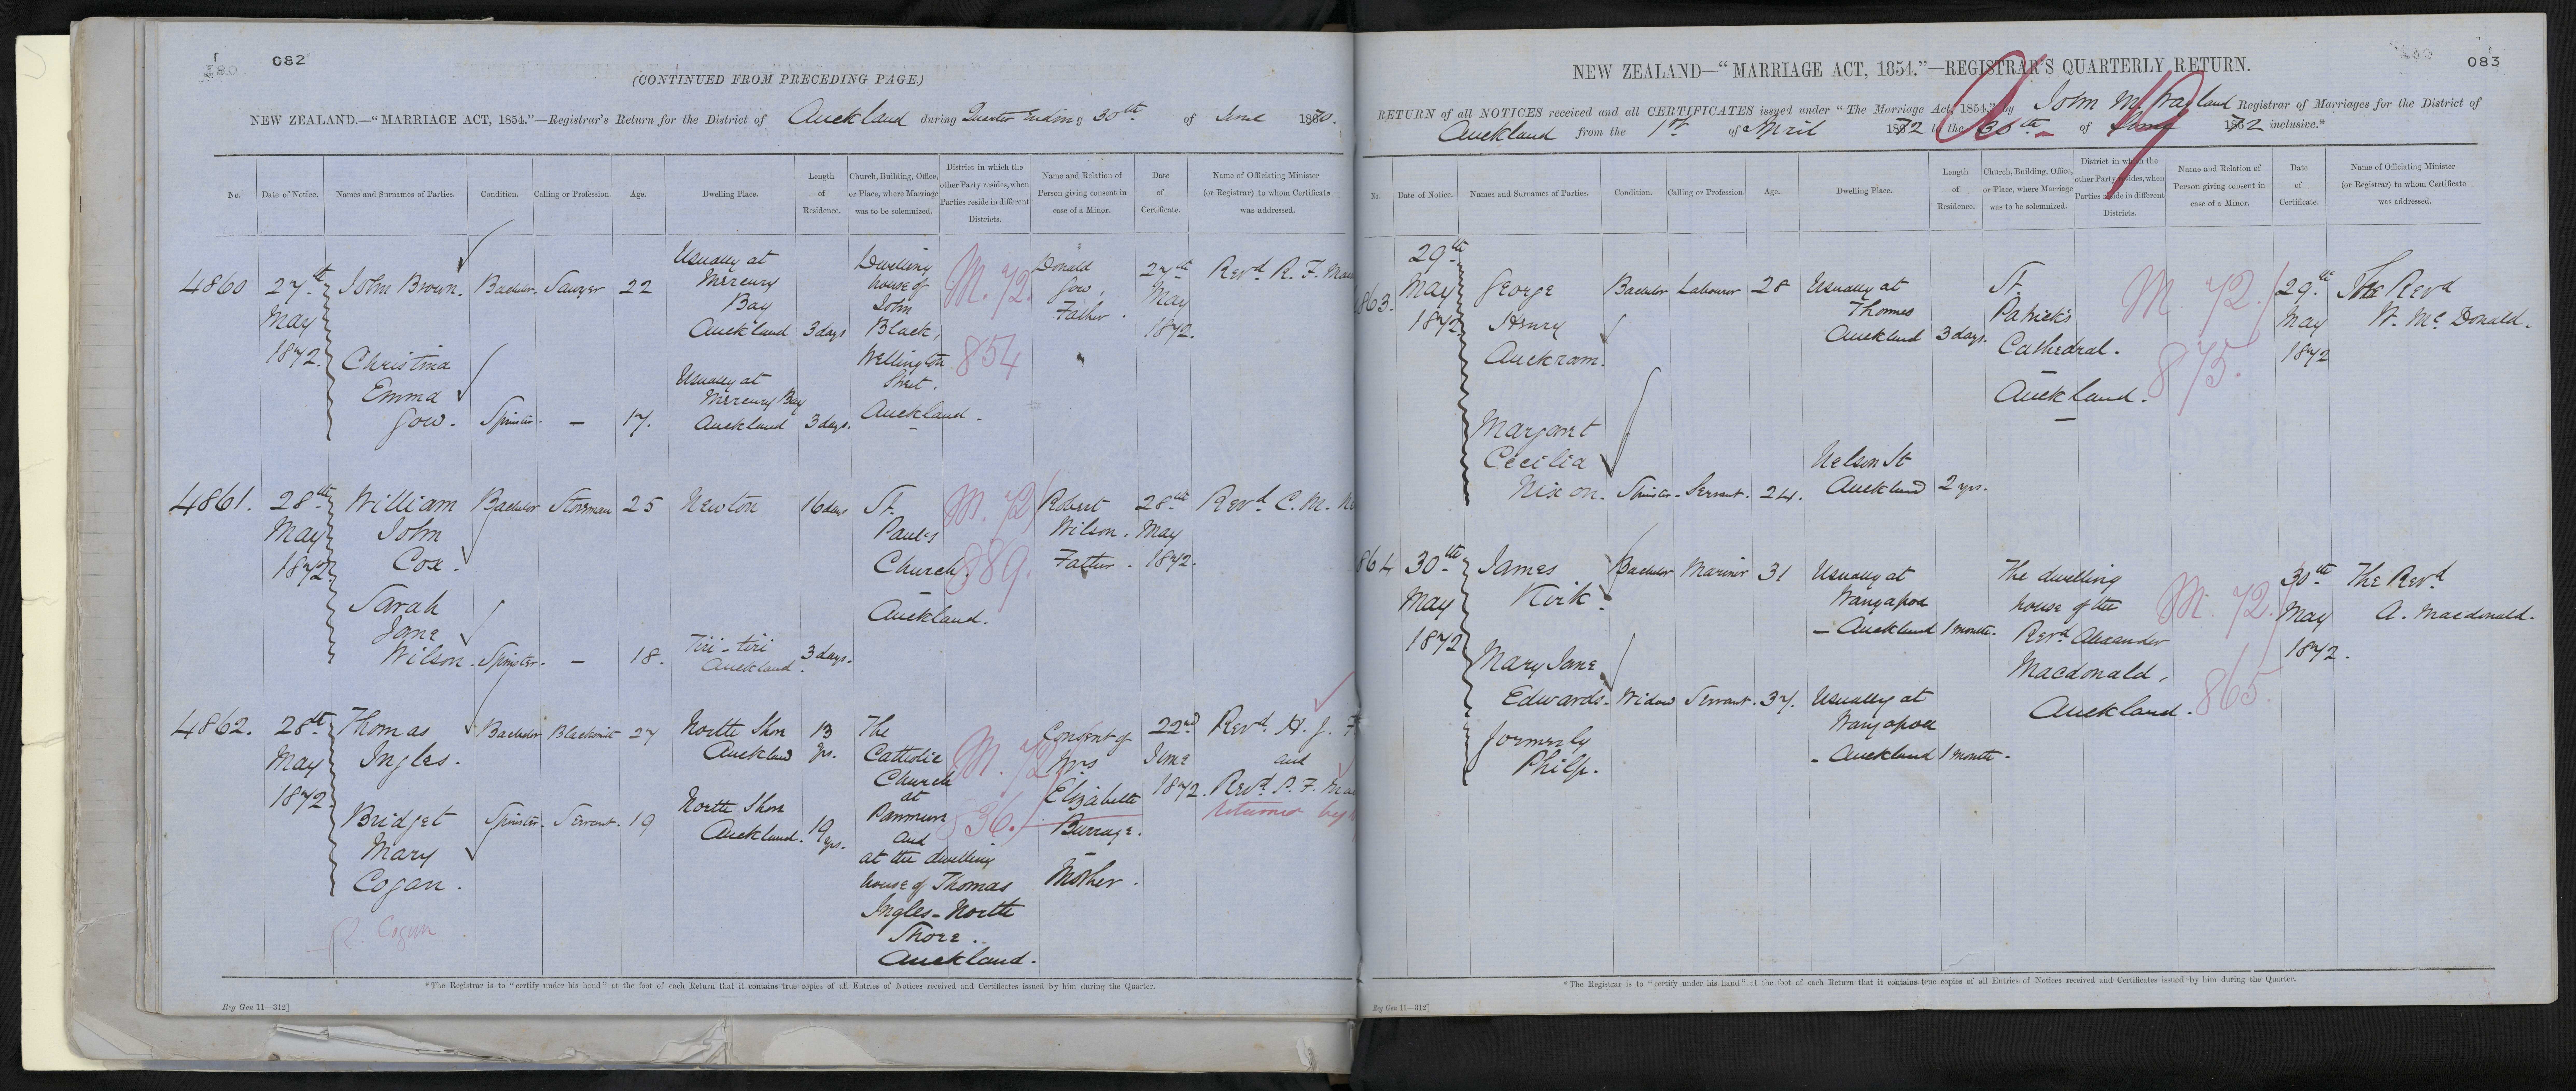 082
(CONTINUED FROM PRECEDING PAGE.)
NEW ZEALAND.—"MARRIAGE ACT, 1854."—Registrar's Return for the District of Auckland during Quarter Ending 30th of June 18
No. Date of Notice. Names and Surnames of Parties. Condition. Calling or Profession. Age. Dwelling Place. Length of Residence. Church, Building, Office, or Place, where Marriage was to be solemnized. District in which the other Party resides, when Parties reside in different Districts. Name and Relation of Person giving consent in case of a Minor. Date of Certificate. Name of Officiating Minister (or Registrar) to whom Certificate was addressed.
4860 27th May 1872.
John Brown. Bachelor. Sawyer 22 Usually at Mercury Bay Auckland 3 days
Christina Emma Gow. Spinster. – 17. Usually at Mercury Bay Auckland 3 days.
Dwelling house of John Black, Wellington Street. Auckland.
M. 72. 854
Donald Gow, Father.
27th May 1872.
Revd R. F.
4861. 28th May 1872
William John Cox. Bachelor Storeman 25 Newton 16 days
Sarah Jane Wilson. Spinster. – 18. Tiri-tiri Auckland. 3 days.
St. Paul's Church. Auckland.
M. 72 889.
Robert Wilson. Father.
28th May 1872.
Revd C. M.
4862. 28th May 1872
Thomas Ingles. Bachelor Blacksmith 27 North Shore Auckland 13 yrs.
Bridget Mary Cogan. Spinster. Servant. 19 North Shore Auckland. 19 yrs.
R. Cogan
The Catholic Church at Panmure and at the dwelling house of Thomas Ingles – North Shore.. Auckland.
M. 72 836.
Consent of Mrs Elizabeth Burrage. Mother.
22nd June 1872.
Revd H. J. F
and
Revd P. F.
returned by
*The Registrar is to "certify under his hand" at the foot of each Return that it contains true copies of all Entries of Notices received and Certificates issued by him during the Quarter.
Reg Gen 11—312]
083
NEW ZEALAND—"MARRIAGE ACT, 1854."—REGISTRAR'S QUARTERLY RETURN.
RETURN of all NOTICES received and all CERTIFICATES issued under "The Marriage Act, 1854," by John M. Wayland Registrar of Marriages for the District of
Auckland from the 1st of April 1872 to the 30th of June 1872 inclusive.*
No. Date of Notice. Names and Surnames of Parties. Condition. Calling or Profession. Age. Dwelling Place. Length of Residence. Church, Building, Office, or Place, where Marriage was to be solemnized. District in which the other Party resides, when Parties reside in different Districts. Name and Relation of Person giving consent in case of a Minor. Date of Certificate. Name of Officiating Minister (or Registrar) to whom Certificate was addressed.
863. 29th May 1872
George Henry Auckram. Bachelor Labourer 28 Usually at Thames Auckland 3 days.
Margaret Cecilia Nixon. Spinster. Servant. 24. Nelson St Auckland 2 yrs.
St. Patrick's Cathedral. Auckland.
M. 72. 875.
29th May 1872
The Revd W. McDonald.
864 30th May 1872
James Kirk. Bachelor Mariner 31 Usually at Wangapoa – Auckland 1 month.
Mary Jane Edwards. formerly Philp. Widow Servant. 37. Usually at Wangapoa – Auckland 1 month.
The dwelling house of the Revd Alexander Macdonald, Auckland.
M. 72. 865.
30th May 1872.
The Revd A. Macdonald.
*The Registrar is to "certify under his hand" at the foot of each Return that it contains true copies of all Entries of Notices received and Certificates issued by him during the Quarter.
Reg Gen 11—312]